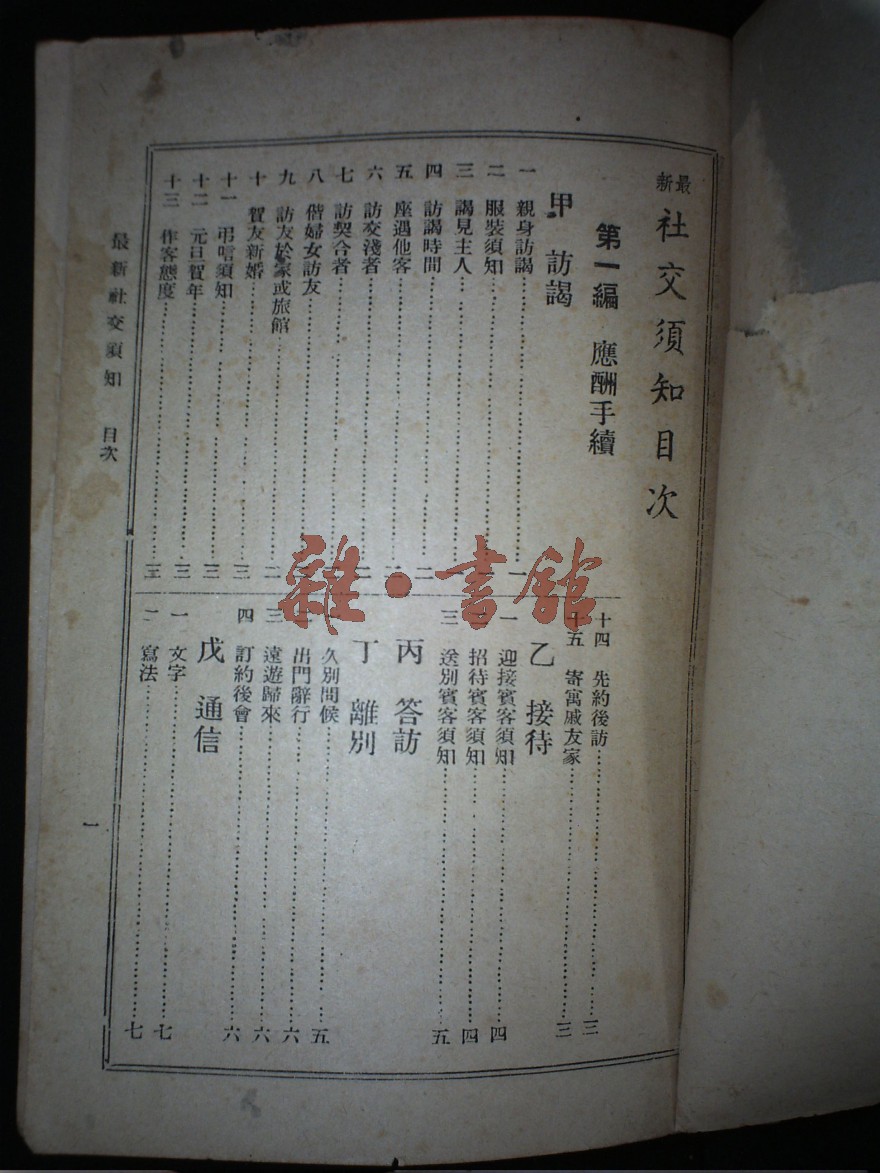 最新 社交須知目次
第一編 應酬手續
甲 訪謁
一 親身訪謁 一
二 服裝須知
三 謁見主人
四 訪謁時間 二
五 座遇他客
六 訪交淺者 二
七 訪契合者
八 偕婦女訪友
九 訪友於家或旅館 二
十 賀友新婚 三
十一 弔唁須知 三
十二 元旦賀年 三
十三 作客態度 三
十四 先約後訪 三
十五 寄寓戚友家 三
乙 接待
一 迎接賓客須知 四
招待賓客須知 四
三 送別賓客須知 五
丙 答訪
丁 離別
久別問候 五
出門辭行 六
三 遠遊歸來 六
四 訂約後會 六
戊 通信
一 文字 七
二 寫法 七
最新社交須知 目次
一
雜·書館